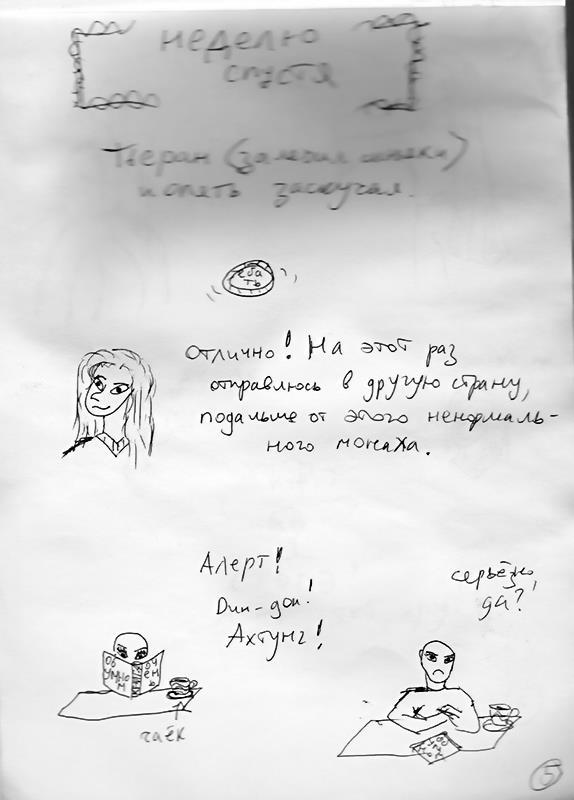 неделю
спустя
Тиеран (залечил синяки)
и опять заскучал.
еба
ть
Отлично! На этот раз
отправлюсь в другую страну,
подальше от этого ненормаль-
ного монаха.
Алерт!
Дин-дон!
Ахтунг!
серьёзно,
да?
об
умном
очень
чаёк
5